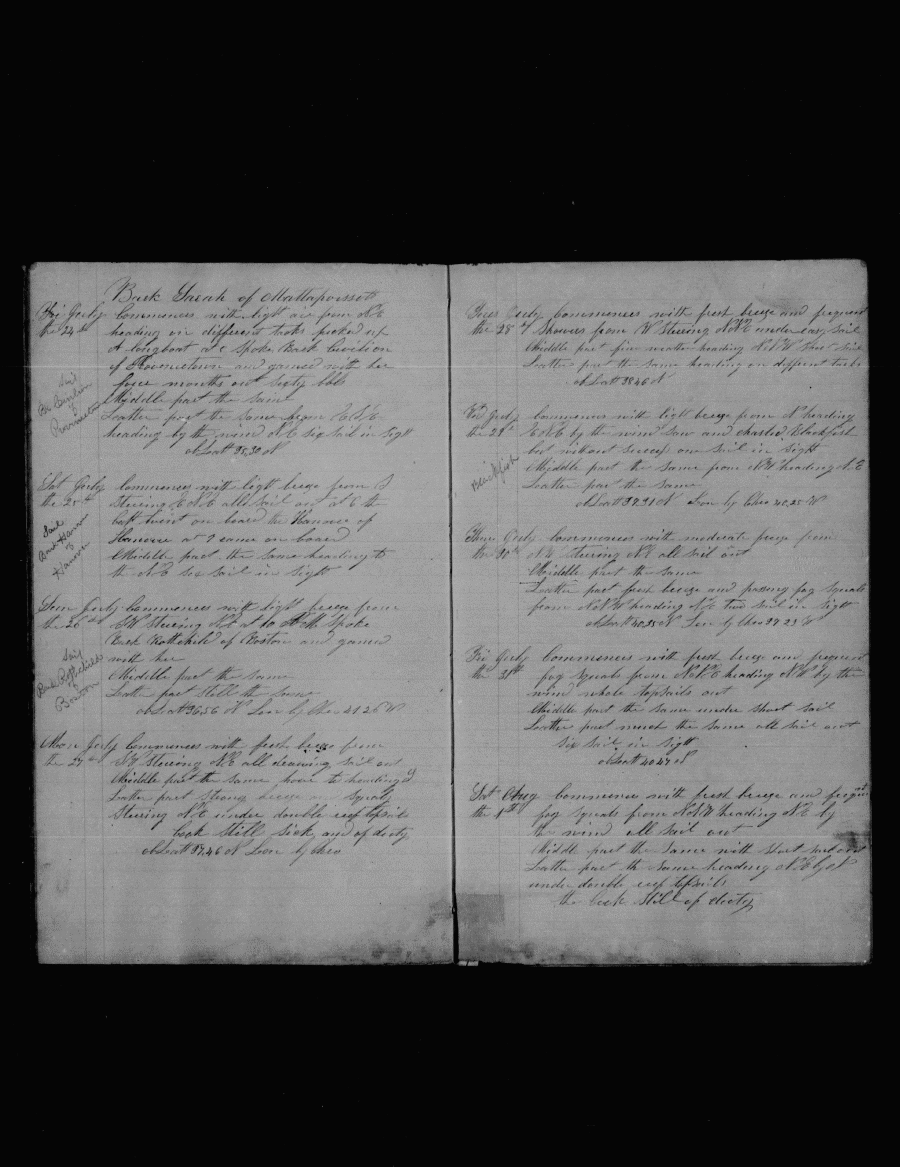 Bark Sarah of Mattapoisett
Fri July Commences with light air from NE
the 24th heading on different tacks picked up
A longboat at spoke Bark
of Provincetown and gamed with her
four months out sixty bbls
Middle part the same
Sail
of
Provincetown
Latter part the same from ENE
heading by the wind NE six sail in sight
Latt 35,30 N
Sat July Commences with light breeze from S
the 25th Steering ENE all sail out at 6 the
Capt went on board the Hanover of
Hanover at 9 came on board
Sail
Bark Hanover
of
Hanover
Middle part the same heading to
the NE six sail in sight
Sun July Commences with light breeze from
the 26th SW Steering NE at 10 Spoke
Bark Rothchild of Boston and gamed
with her
Sail
Bark Rothchild
of
Boston
Middle part the same
Latter part still the same
Latt 36,56 N Lon by Chro 41 26 W
Mon July Commences with fresh breeze from
the 27th SW Steering NE all drawing sail out
Middle part the same hove to heading
Latter part strong breeze and squaly
Steering NE under double reef topsails
Cook Still Sick and of duty
Latt 37,46 N Lon by Chro
Tues July Commences with fresh breeze and frequent
the 28th Showers from W Steering NNE under easy sail
Middle part fine weather heading NNW Short sail
Latter part the same heading on different tacks
Latt 38 46 N
Wd July Commences with light breeze from N heading
the 29th ENE by the wind saw and chasted Blackfish
but without success one sail in sight
Blackfish
Middle part the same from NW heading NE
Latter part the same
Latt 39,31 N Lon by Chro 40,25 W
Thurs July Commences with moderate breeze from
the 30th NW steering NE all sail out
Middle part the same
Latter part fresh breeze and passing fog squals
from NNW heading NE two sail in sight
Latt 40,35 N Lon by Chro 39 23 W
Fri July Commences with fresh breeze and frequent
the 31st fog squals from NNE heading NW by the
wind whole topsails out
Middle part the same under short sail
Latter part much the same all sail out
six sail in sight
Latt 40 47 N
Sat Aug Commences with fresh breeze and frequent
the 1st fog squals from NNW heading NE by
the wind all sail out
Middle part the same with short sail out
Latter part the same heading NE by N
under double reef topsails
the Cook Still of duty